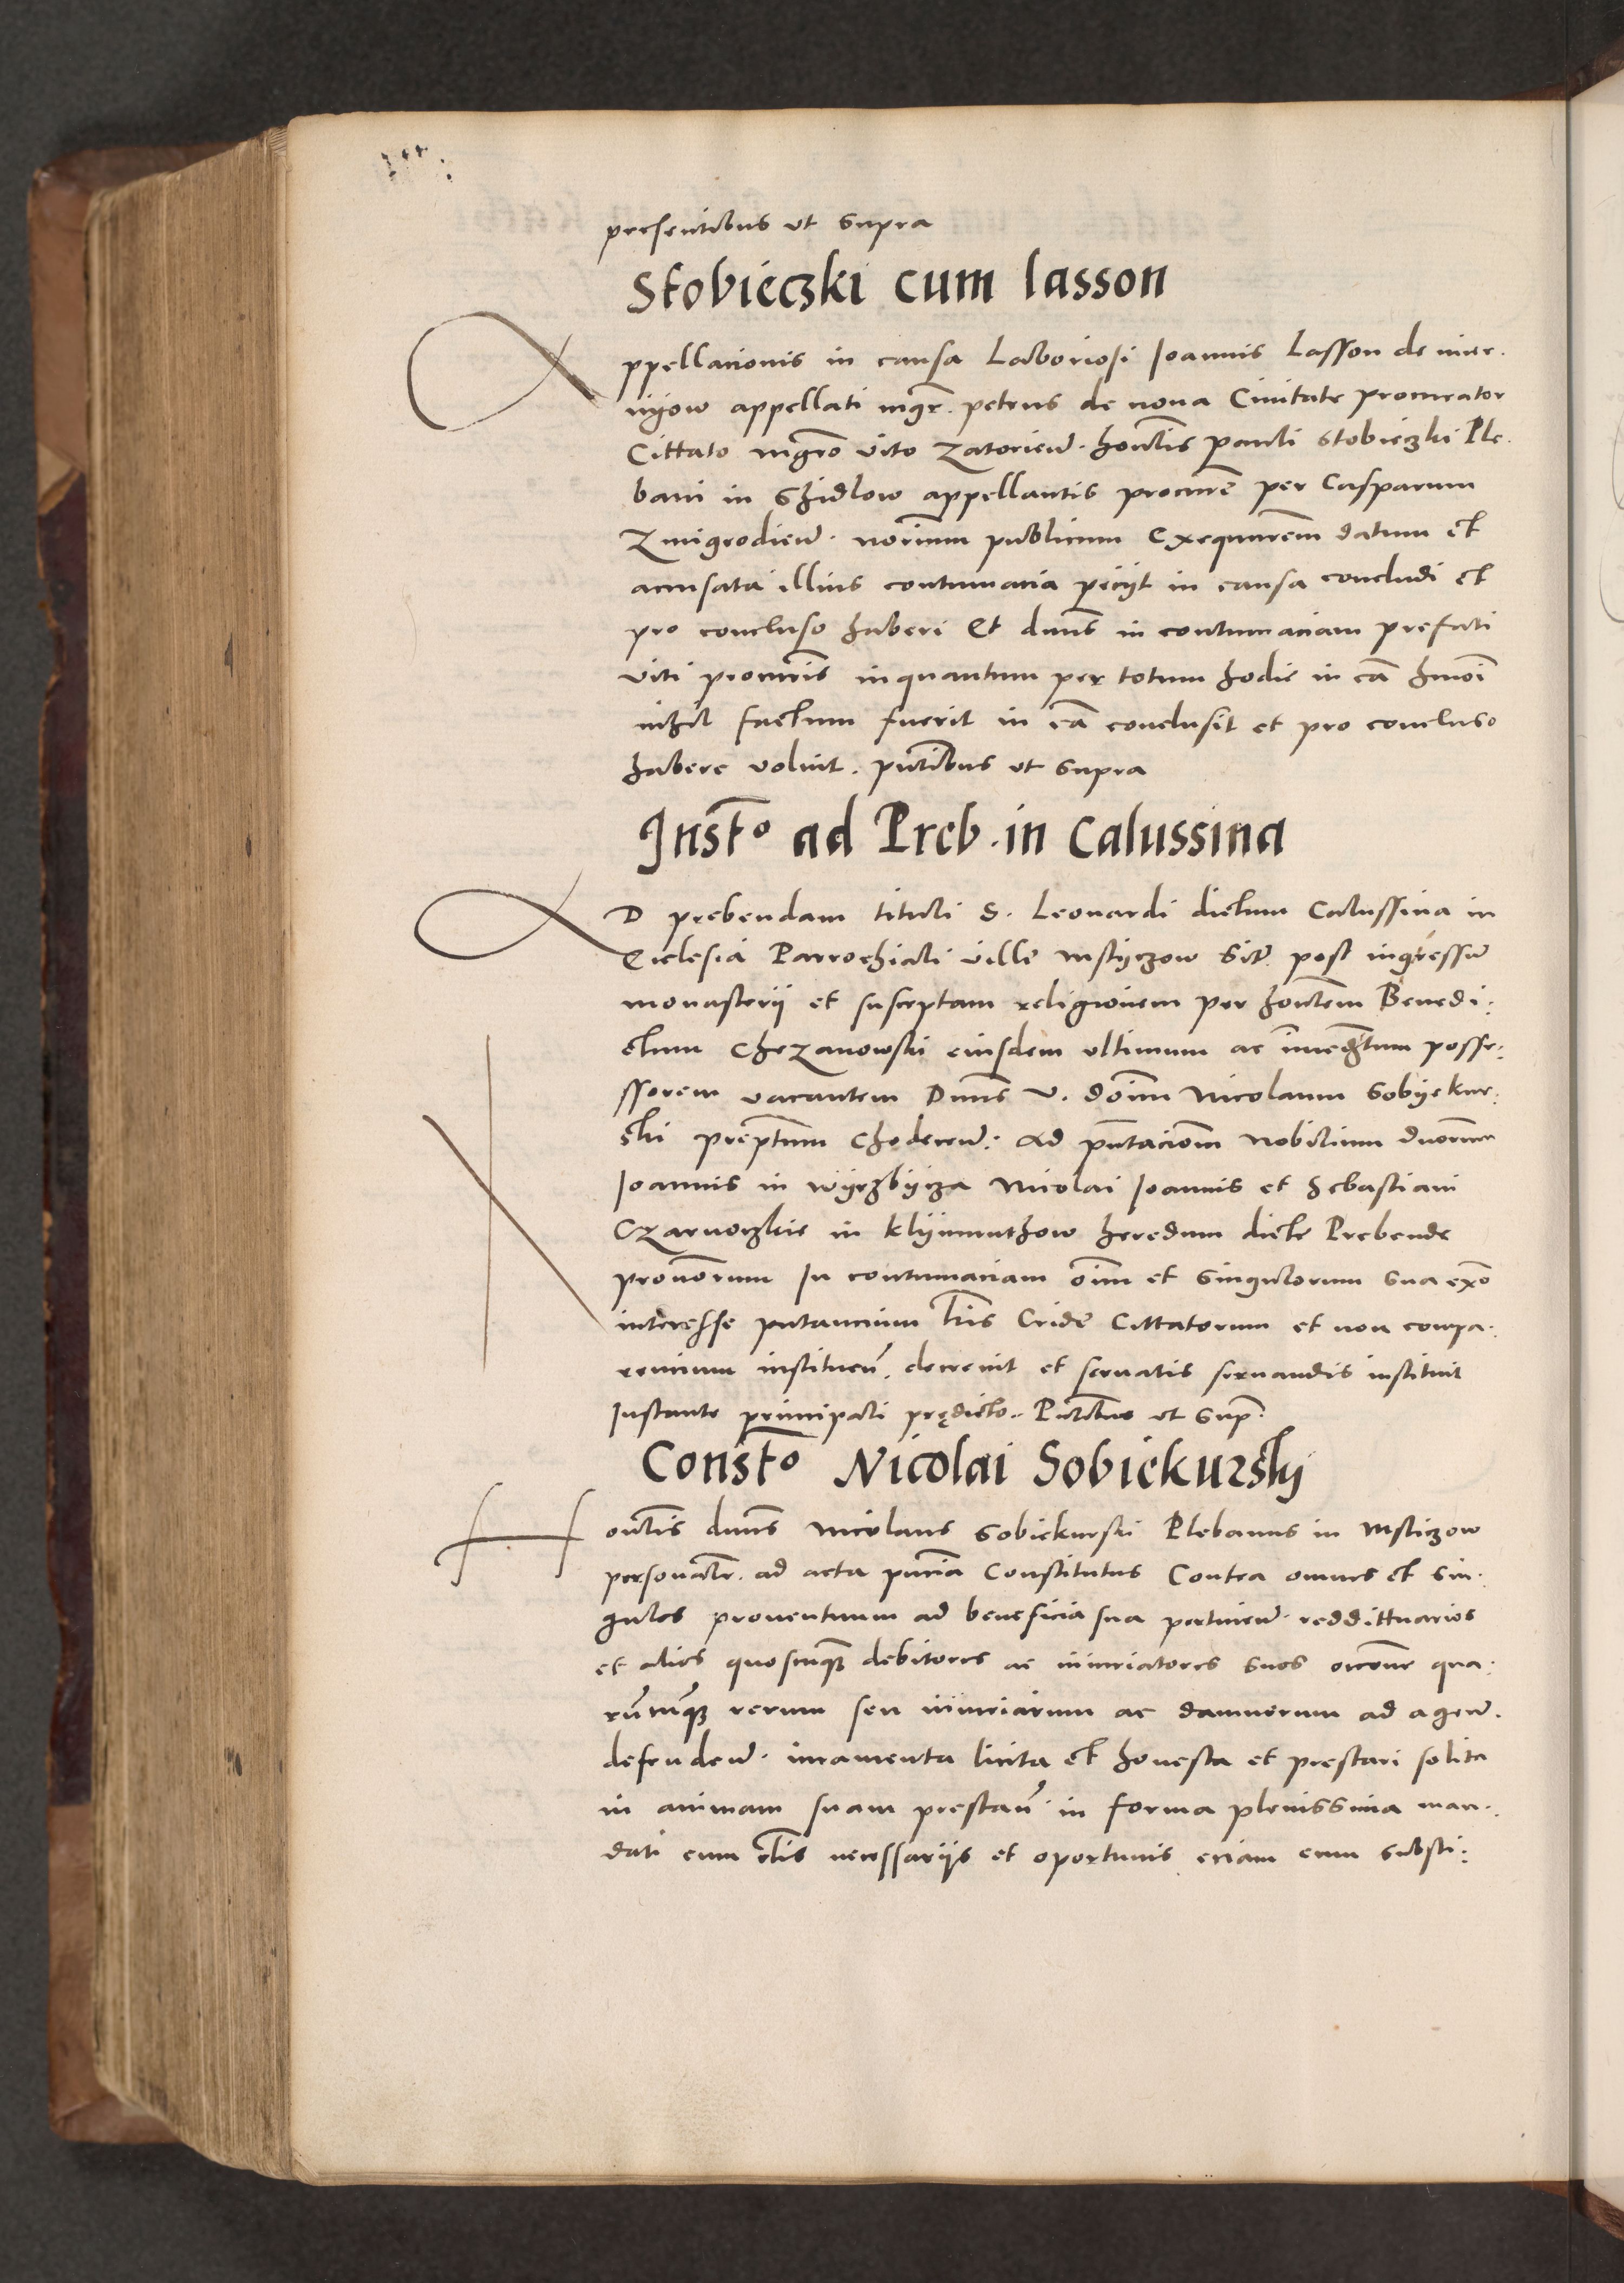 presentibus ut supra
Stobieczki cum lasson
Appellationis in causa Laboriosi Joannis Lasson de
appellati mgr. petrus de nova Civitate procurator
Cittato mgro vito Zatorien. honlis pauli stobieczki Ple-
bani in Shidlow appellantis procure per Casparum
Zmigrodien. norium publicum Exequutem datum et
accusata illius contumacia petijt in causa concludi et
pro concluso haberi Et dnus in contumaciam prefati
viti procuris inquantum per totum hodie in ca hmoi
nihil factum fuerit in ca conclusit et pro concluso
habere voluit. pntibus ut supra
Insto ad Preb. in Calussina
AD prebendam tituli S. Leonardi dictum Calussina in
Ecclesia Parrochiali ville Mstyczow Sit. post ingressum
monasterij et susceptam religionem per honlem Benedi:
ctum Chezanowski eiusdem ultimum ac posse:
ssorem vacantem Dnus V. doim Nicolaum Sobyekur:
ski Choderen: Ad pntaciom Nobilium duorum
Joannis in Wyrzbycza Nicolai Joannis et Sebastiani
Czarnoczkie in klyimunthow heredum dicte Prebende
In contumaciam oim et singulorum sua exo
interesse putancium lris Cride Cittatorum et non compa-
rencium instituen. decrevit et servatis servandis instituit
Instante principali predicto.. Pntibus ut sup:
Consto Nicolai Sobiekurski
Honlis dnus Nicolaus Sobiekurski Plebanus in Msticzow
personalr. ad acta pncia Constitutus Contra omnes et sin-
gulos proventuum ad beneficia sua pertinen. reddittuarios
et alios quoscunque debitores ac iniuriatores suos occone qua-
runcunque rerum seu iniuriarum ac damnorum ad agen.
defenden. iuramenta licita et honesta et prestari solita
in animam suam prestan. in forma plenissima man-
dati cum clis necessarijs et oportunis eciam cum substi: